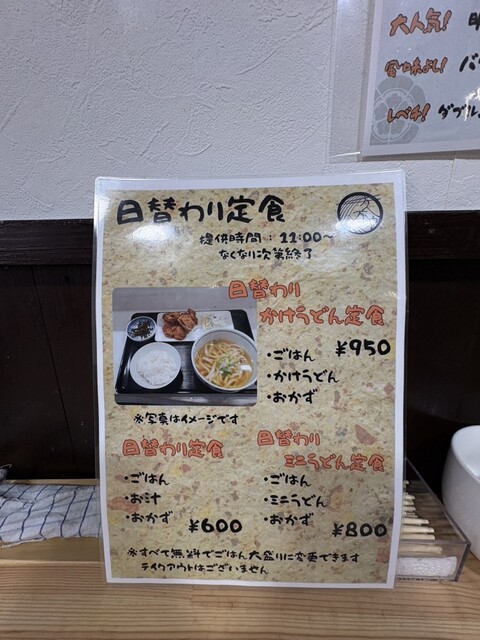 大人気!
風味よし!
レベチ!
ダブル
日替わり定食
提供時間：11:00～
なくなり次第終了
日替わり
かけうどん定食
¥950
・ごはん
・かけうどん
・おかず
※写真はイメージです
日替わり定食
・ごはん
・お汁
・おかず
¥600
日替わり
ミニうどん定食
・ごはん
・ミニうどん
・おかず
¥800
※すべて無料でごはん大盛りに変更できます
テイクアウトはございません